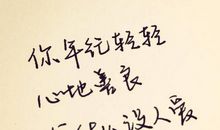 你年纪轻轻
心地善良
没人爱